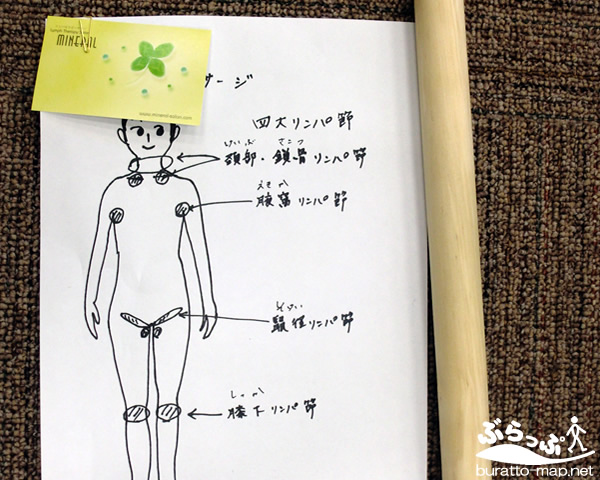 MINERAL
www.mineral-salon.com
サージ
四大リンパ節
けいぶ さこつ
頚部・鎖骨リンパ節
えきか
腋窩リンパ節
そけい
鼠径リンパ節
しっか
膝下リンパ節
ぶらっぷ
buratto-map.net